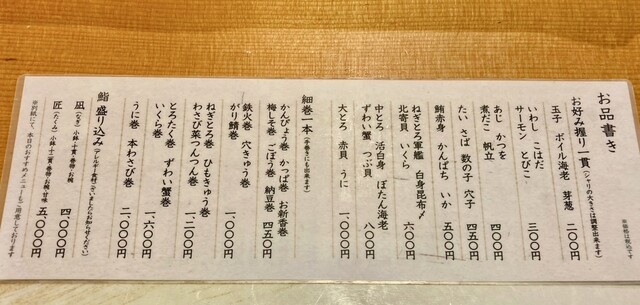 お品書き
※価格は税込です
お好み握り一貫(シャリの大きさは調整出来ます)
玉子 ボイル海老 芽葱 二〇〇円
いわし こはだ
サーモン とびこ 三〇〇円
あじ かつを
煮だこ 帆立 四〇〇円
たい さば 数の子 穴子 四五〇円
鮪赤身 かんぱち いか 五五〇円
ねぎとろ軍艦 白身昆布〆
北寄貝 いくら 六〇〇円
中とろ 活白身 ぼたん海老
ずわい蟹 つぶ貝 八〇〇円
大とろ 赤貝 うに 一、〇〇〇円
細巻一本(手巻きにも出来ます)
かんぴょう巻 かっぱ巻 お新香巻
梅しそ巻 ごぼう巻 納豆巻 四五〇円
鉄火巻 穴きゅう巻
がり鯖巻 一、〇〇〇円
ねぎとろ巻 ひもきゅう巻
わさび菜つんつん巻 一、二〇〇円
とろたく巻 ずわい蟹巻
いくら巻 一、六〇〇円
うに巻 本わさび巻 二、〇〇〇円
鮨 盛り込み(アレルギー食材ございましたらお知らせください)
凪(なぎ)小鉢・十貫・巻物・お椀 四、〇〇〇円
匠(たくみ)小鉢・十貫・巻物・お椀・甘味 五、〇〇〇円
※別紙にて、本日のおすすめメニューもご用意しております